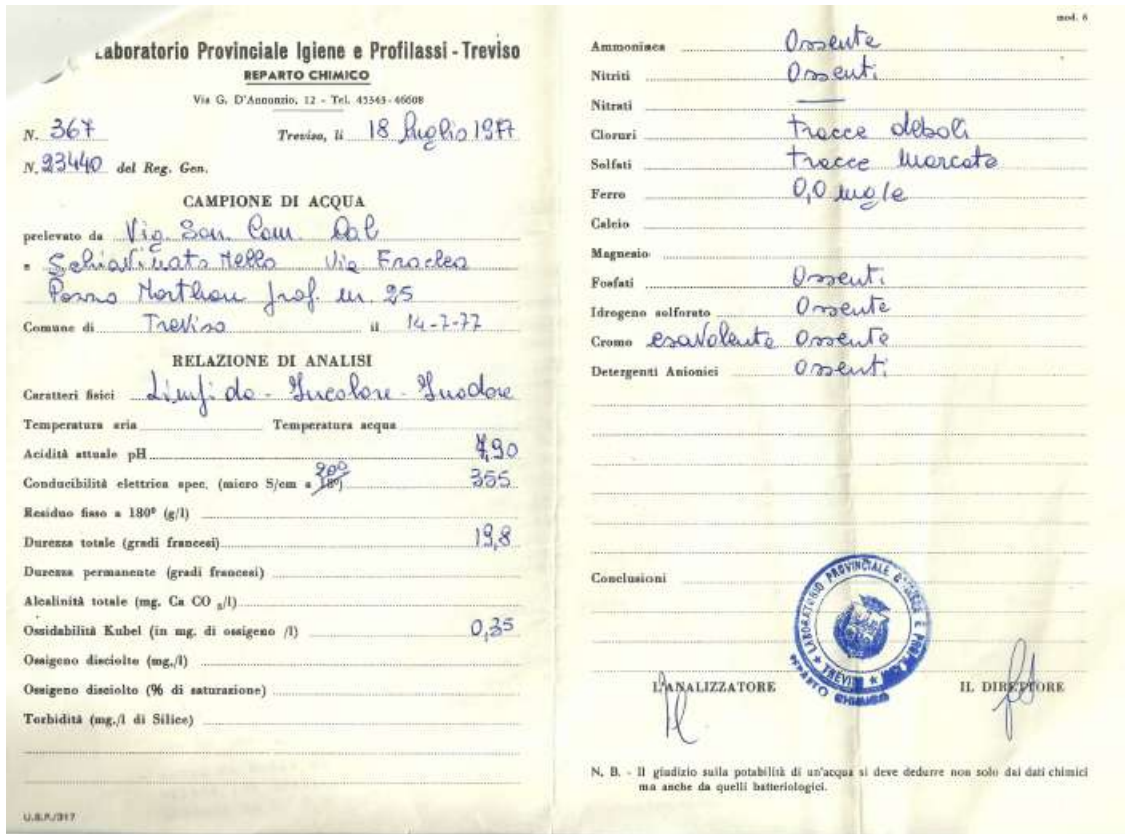 Laboratorio Provinciale Igiene e Profilassi - Treviso
REPARTO CHIMICO
Via G. D'Annunzio, 12 - Tel. 45545 - 46608
N. 367 Treviso, li 18 luglio 1977
N. 23440 del Reg. Gen.
CAMPIONE DI ACQUA
prelevato da Vig. San. Com. Dal
a Schiavinato Nello Via Eraclea
Pozzo Northon prof. m. 25
Comune di Treviso il 14-7-77
RELAZIONE DI ANALISI
Caratteri fisici Limpida - Incolore - Inodore
Temperatura aria Temperatura acqua
Acidità attuale pH 7,90
Conducibilità elettrica spec. (micro S/cm a 18º) 20º 355
Residuo fisso a 180º (g/l)
Durezza totale (gradi francesi) 19,8
Durezza permanente (gradi francesi)
Alcalinità totale (mg. Ca CO 3/l)
Ossidabilità Kubel (in mg. di ossigeno /l) 0,35
Ossigeno disciolto (mg./l)
Ossigeno disciolto (% di saturazione)
Torbidità (mg./l di Silice)
U.S.P./317
mod. 6
Ammoniaca Assente
Nitriti Assenti
Nitrati —
Cloruri tracce deboli
Solfati tracce marcate
Ferro 0,0 mg/l
Calcio
Magnesio
Fosfati Assenti
Idrogeno solforato Assente
Cromo esavalente Assente
Detergenti Anionici Assenti
Conclusioni
LABORATORIO PROVINCIALE D'IGIENE E PROFILASSI
TREVISO
REPARTO CHIMICO
L'ANALIZZATORE IL DIRETTORE
N. B. - Il giudizio sulla potabilità di un'acqua si deve dedurre non solo dai dati chimici
ma anche da quelli batteriologici.